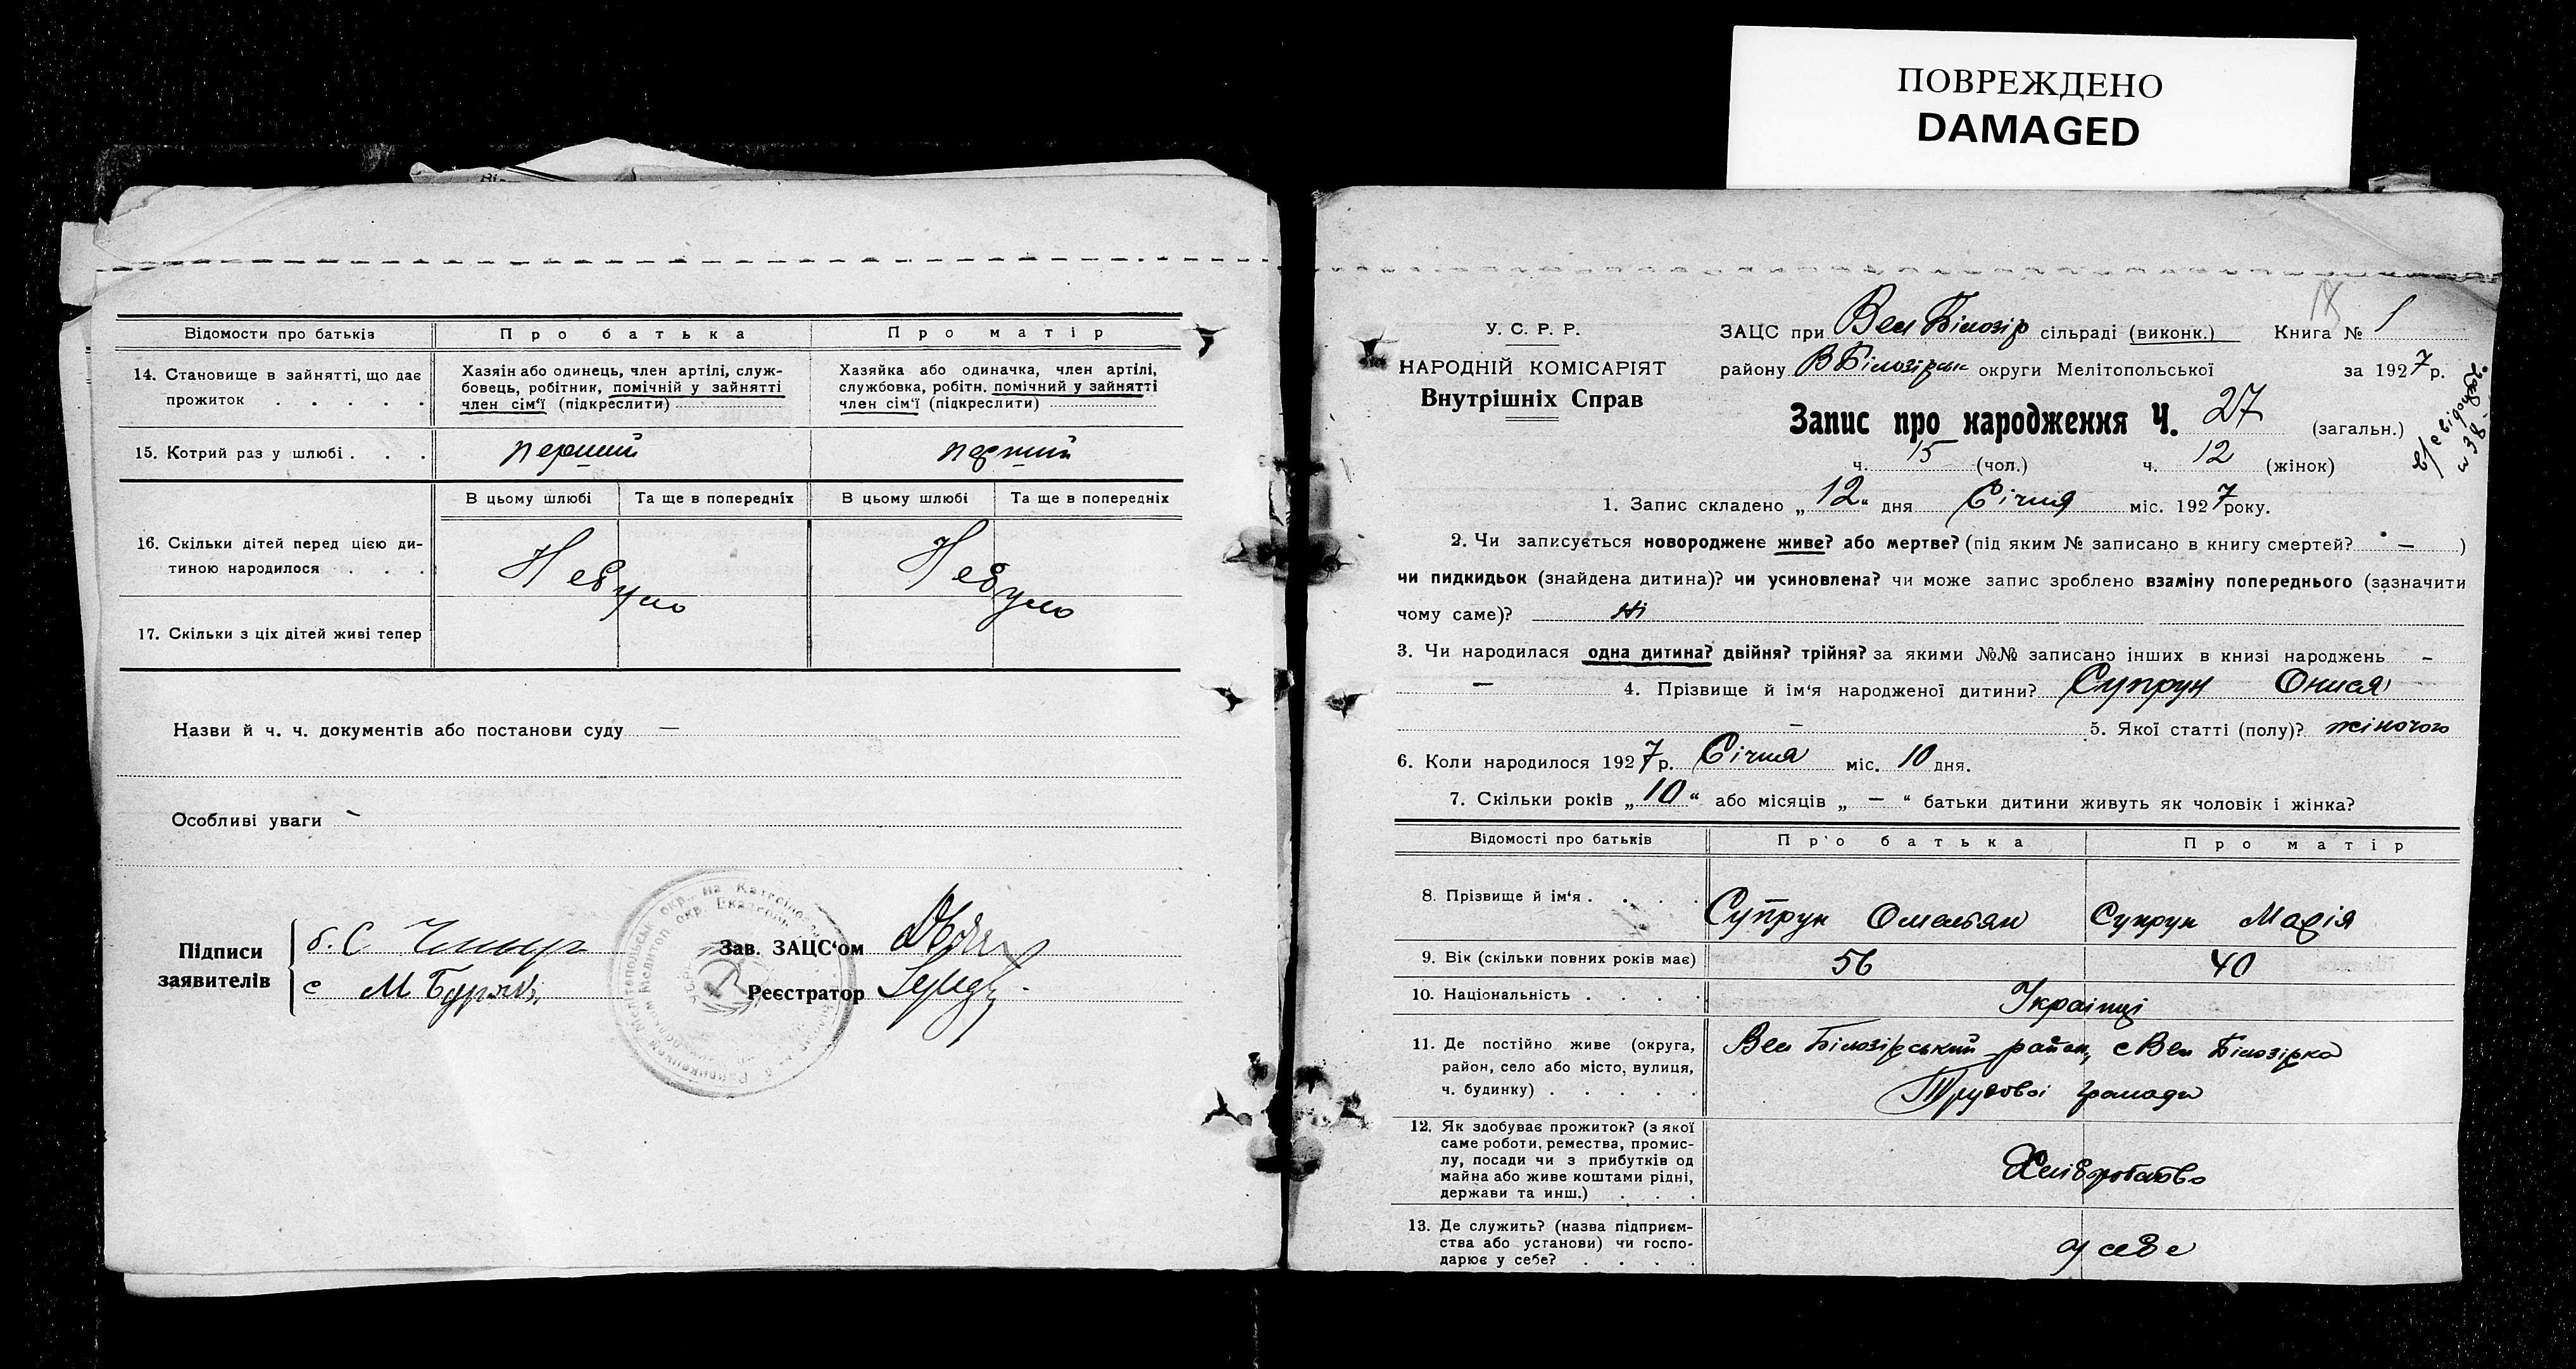 ПОВРЕЖДЕНО
DAMAGED
Відомости про батьків
Про батька
Про матір
14. Становище в зайнятті, що дає
прожиток . . . . .
Хазяїн або одинець, член артілі, служ-
бовець, робітник, помічній у зайнятті
член сім‘ї (підкреслити)
Хазяйка або одиначка, член артілі,
службовка, робітн. помічний у зайнятті
член сім‘ї (підкреслити)
15. Котрий раз у шлюбі . . .
перший
перший
В цьому шлюбі
Та ще в попередніх
В цьому шлюбі
Та ще в попередніх
16. Скільки дітей перед цією ди-
тиною народилося . . .
Небуло
Небуло
17. Скільки з ціх дітей живі тепер
Назви й ч. ч. документів або постанови суду —
Особливі уваги –
Підписи
заявителів
Зав. ЗАЦС‘ом
Реєстратор
У. С. Р. Р.
НАРОДНІЙ КОМІСАРІЯТ
Внутрішніх Справ
18
ЗАЦС при Вел Білозір сільраді (виконк.) Книга № 1
району ВБілозірськ округи Мелітопольської за 1927р.
Запис про народження Ч. 27 (загальн.)
ч. 15 (чол.) ч. 12 (жінок)
1. Запис складено „12“ дня Січня міс. 1927року.
2. Чи записується новороджене живе? або мертве? (під яким № записано в книгу смертей? — )
чи пидкидьок (знайдена дитина)? чи усиновлена? чи може запис зроблено взаміну попереднього (зазначити
чому саме)? ні
3. Чи народилася одна дитина? двійня? трійня? за якими №№ записано інших в книзі народжень —
— 4. Прізвище й ім‘я народженої дитини? Супрун Онися
— 5. Якої статті (полу)? жіночого
6. Коли народилося 1927р. Січня міс. 10 дня.
7. Скільки років „10“ або місяців „—“ батьки дитини живуть як чоловік і жінка?
Відомості про батьків
Про батька
Про матір
8. Прізвище й ім‘я . . . .
Супрун Омельян
Супрун Марія
9. Вік (скільки повних років має)
56
40
10. Національність . . . .
Українці
11. Де постійно живе (округа,
район, село або місто, вулиця,
ч. будинку) . . . . .
Вел Білозірський район, с Вел Білозірка
Трудової громади
12. Як здобуває прожиток? (з якої
саме роботи, ремества, промис-
лу, посади чи з прибутків од
майна або живе коштами рідні,
держави та инш.) . . .
Хліборобство
13. Де служить? (назва підприєм-
ства або установи) чи госпо-
дарює у себе? . . . .
у себе